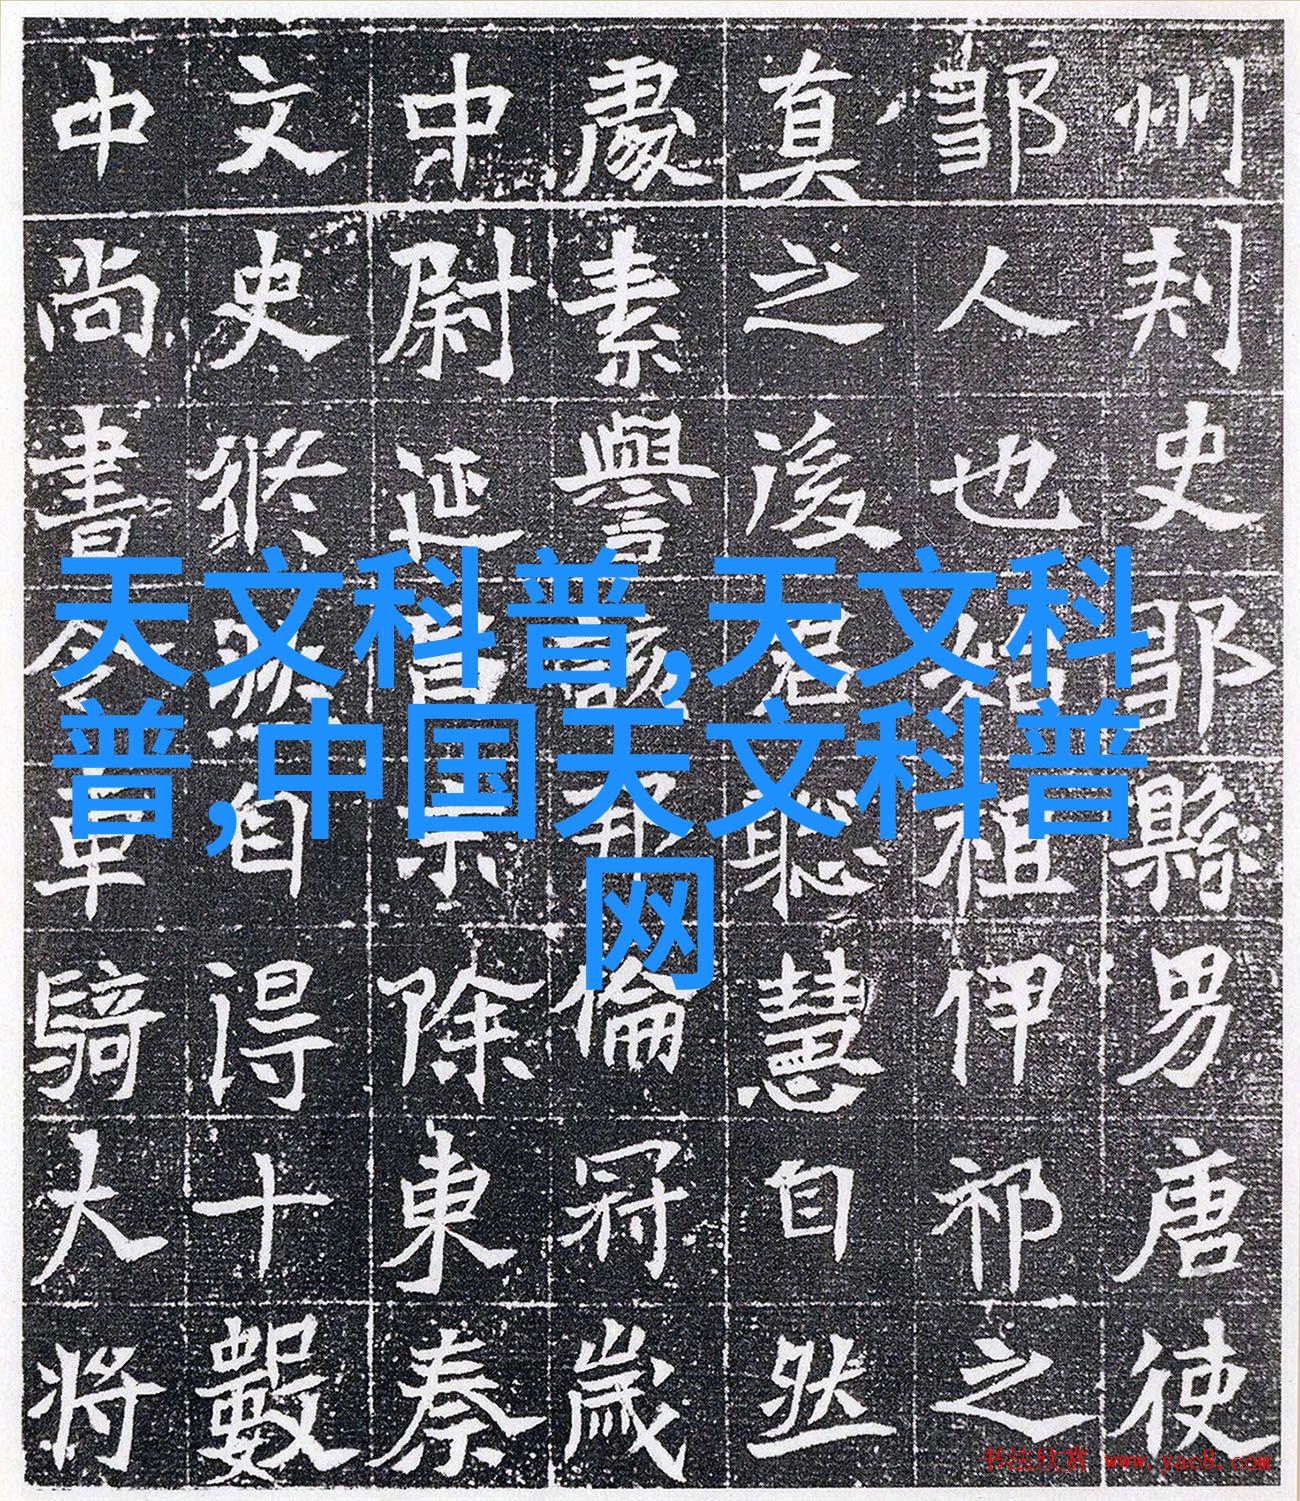 州刾史鄒縣男唐使
鄒人也祖伊祁之
真之後君恥慧自然
處素譽該邦倫冠歲
中尉延昌除東秦
文史倏然自得十數
中尚書令車騎大將
天文科普,天文科
普,中国天文科普
网
书法欣赏 www.yac8.com